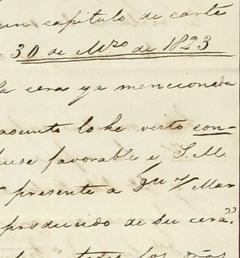 un capitulo de carta
30 de Mzo de 1823
la cera ya mencionada
asunto lo he visto con-
luse favorable e S. M.
presente a Jn V. Mar
producido de su cera"
todos los